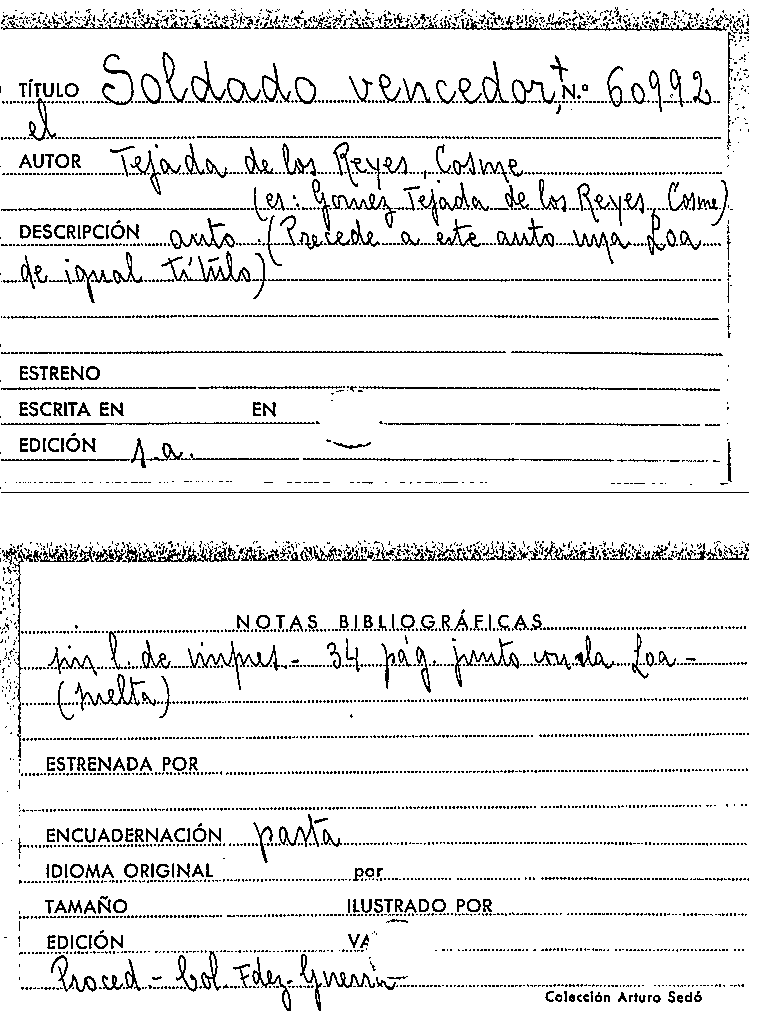 TÍTULO Soldado vencedor, + N.º 60992
el
AUTOR Tejada de los Reyes, Cosme
(es: Gomez Tejada de los Reyes, Cosme)
DESCRIPCIÓN auto. (Precede a este auto una Loa
de igual título)
ESTRENO
ESCRITA EN EN
EDICIÓN s.a.
NOTAS BIBLIOGRÁFICAS
sin l. de impres- 34 pág. junto con la Loa -
(suelta)
ESTRENADA POR
ENCUADERNACIÓN pasta
IDIOMA ORIGINAL por
TAMAÑO ILUSTRADO POR
EDICIÓN VA
Proced- Col. Fdez-Guerra
Colección Arturo Sedó